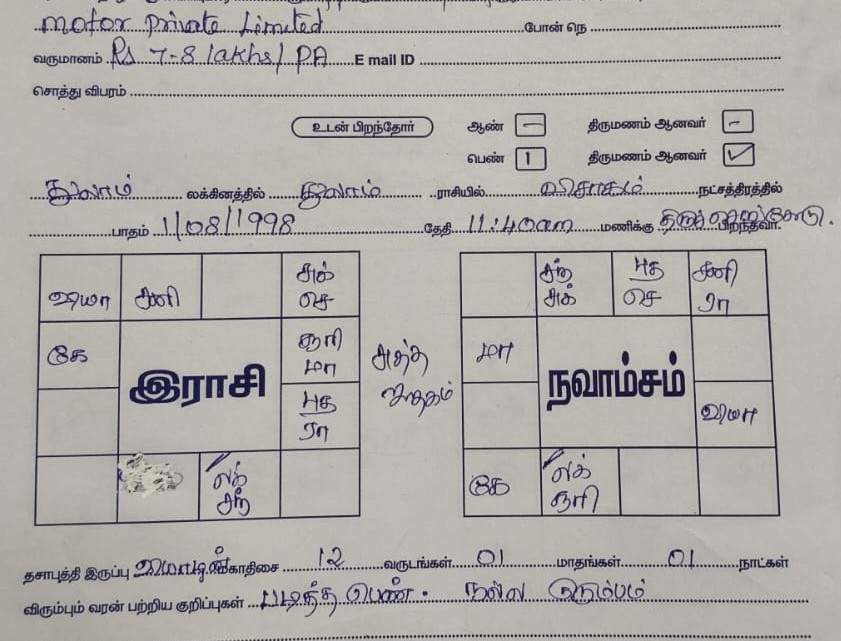 motor Private Limited போன் நெ
வருமானம் Rs 7-8 lakhs/ PA E mail ID
சொத்து விபரம்
உடன் பிறந்தோர் ஆண் - திருமணம் ஆனவர் -
பெண் 1 திருமணம் ஆனவர் ✓
துலாம் லக்கினத்தில் துலாம் ராசியில் விசாகம் நட்சத்திரத்தில்
பாதம் 1/08/1998 தேதி 11:40am மணிக்கு திருச்செங்கோடு. பிறந்தவர்.
வியா சனி சுக் செ
சூரி மா
கே
இராசி
புத ரா
லக் சந்
சுத்த ஜாதகம்
சந் சுக் புத செ சனி ரா
மா
நவாம்சம்
வியா
கே லக் சூரி
தசாபுத்தி இருப்பு திசை 12 வருடங்கள் 01 மாதங்கள் 01 நாட்கள்
விரும்பும் வரன் பற்றிய குறிப்புகள் படித்த பெண். நல்ல குடும்பம்